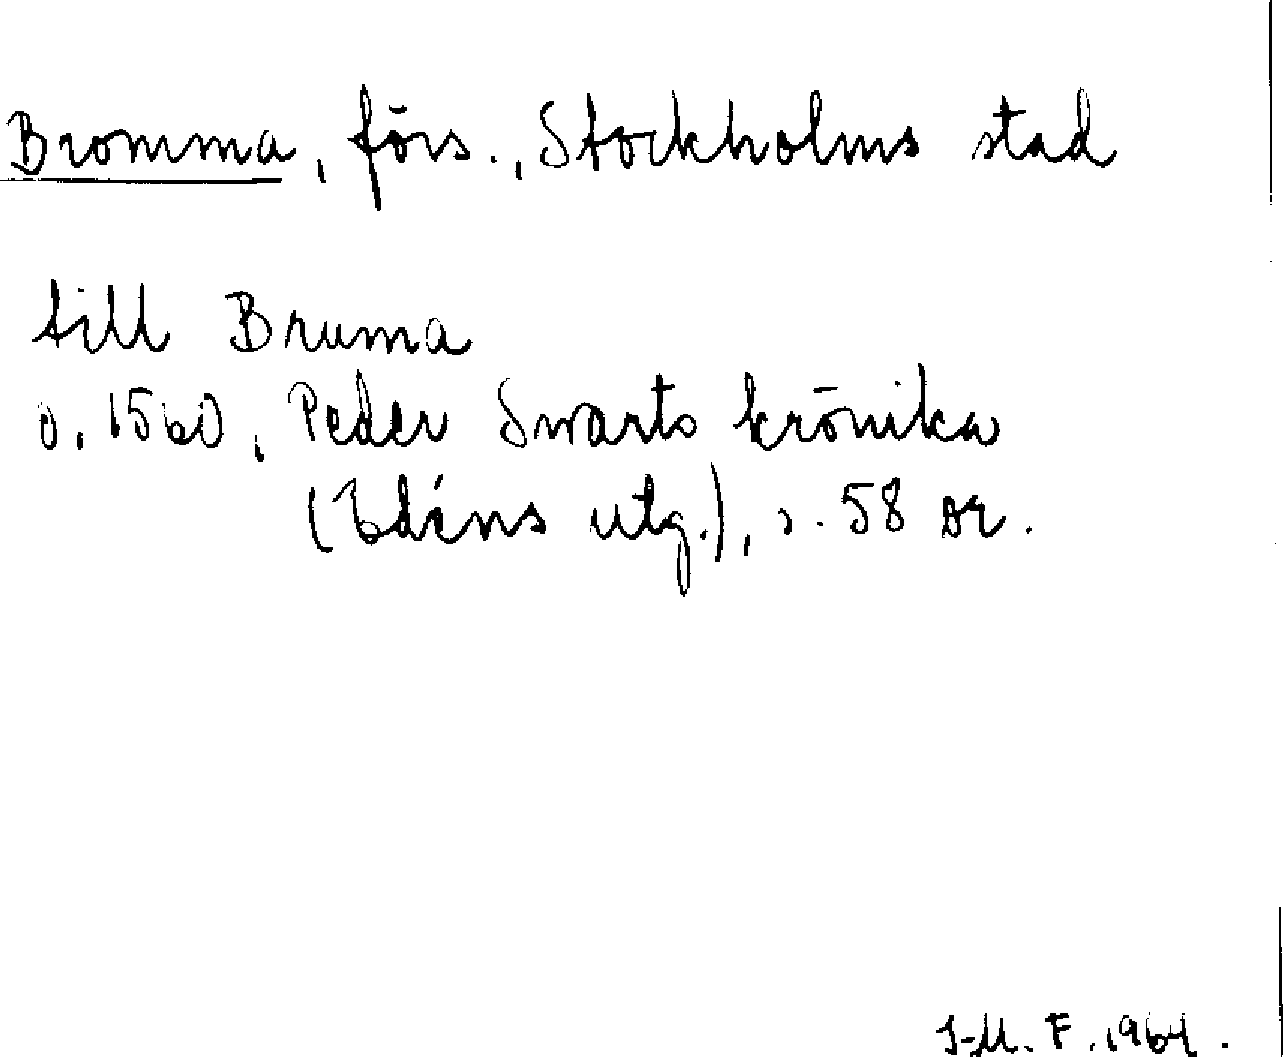 Bromma, förs., Stockholms stad
till Bruma
o. 1560, Peder Swarts krönika
(Edéns utg.), s. 58 or.
I-M. F. 1964.